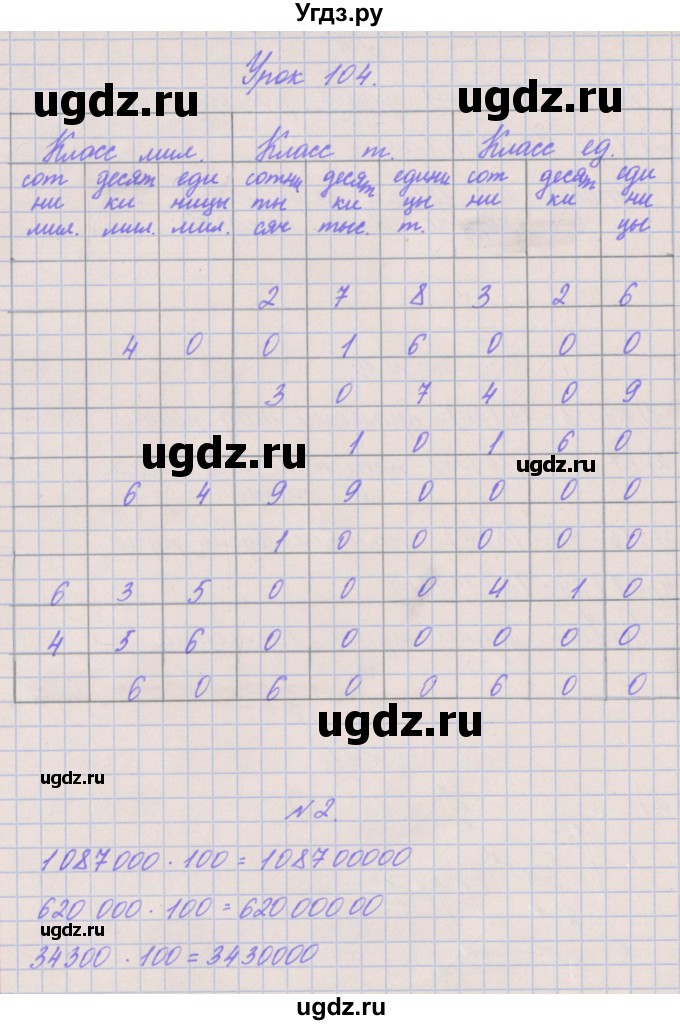 Угдз.ру
Урок 104.
ugdz.ru ugdz.ru
Класс мил. Класс т. Класс ед.
сот десят еди сотни десят едини сот десят еди
ни ки ницы ты ки цы ни ки ни
мил. мил. мил. сяч тыс. т. цы
2 7 8 3 2 6
4 0 0 1 6 0 0 0
3 0 7 4 0 9
1 0 1 6 0
ugdz.ru ugdz.ru
6 4 9 9 0 0 0 0
1 0 0 0 0 0
6 3 5 0 0 0 4 1 0
4 5 6 0 0 0 0 0 0
6 0 6 0 0 6 0 0
ugdz.ru
ugdz.ru
№2.
1087000 · 100 = 108700000
620 000 · 100 = 620 000 00
ugdz.ru
34300 · 100 = 3430000
ugdz.ru